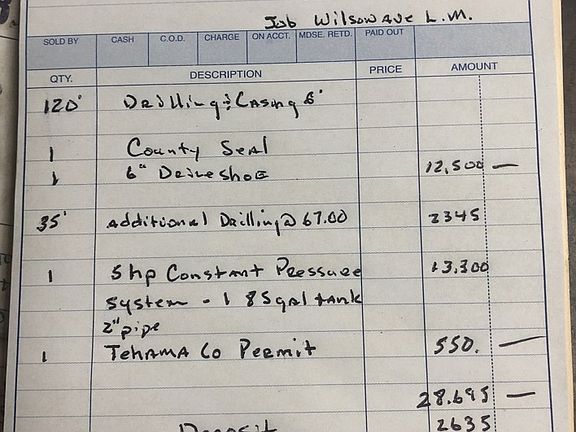 Job Wilson Ave L.M.
SOLD BY CASH C.O.D. CHARGE ON ACCT. MDSE. RETD. PAID OUT
QTY. DESCRIPTION PRICE AMOUNT
120' Drilling & Casing 6"
1 County Seal
1 6" Driveshoe 12,500 —
35' Additional Drilling @ 67.00 2345
1 5hp Constant Pressure 13,300
System - 1 85gal tank
2" pipe
1 Tehama Co Permit 550. —
28.695 —
Deposit 2635